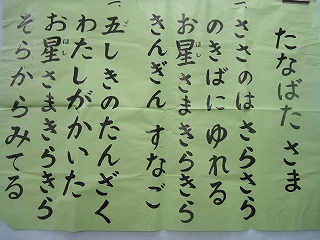 たなばたさま
一、ささのはさらさら
のきばにゆれる
お星さまきらきら
ほし
きんぎんすなご
二、五しきのたんざく
ご
わたしがかいた
お星さまきらきら
ほし
そらからみてる